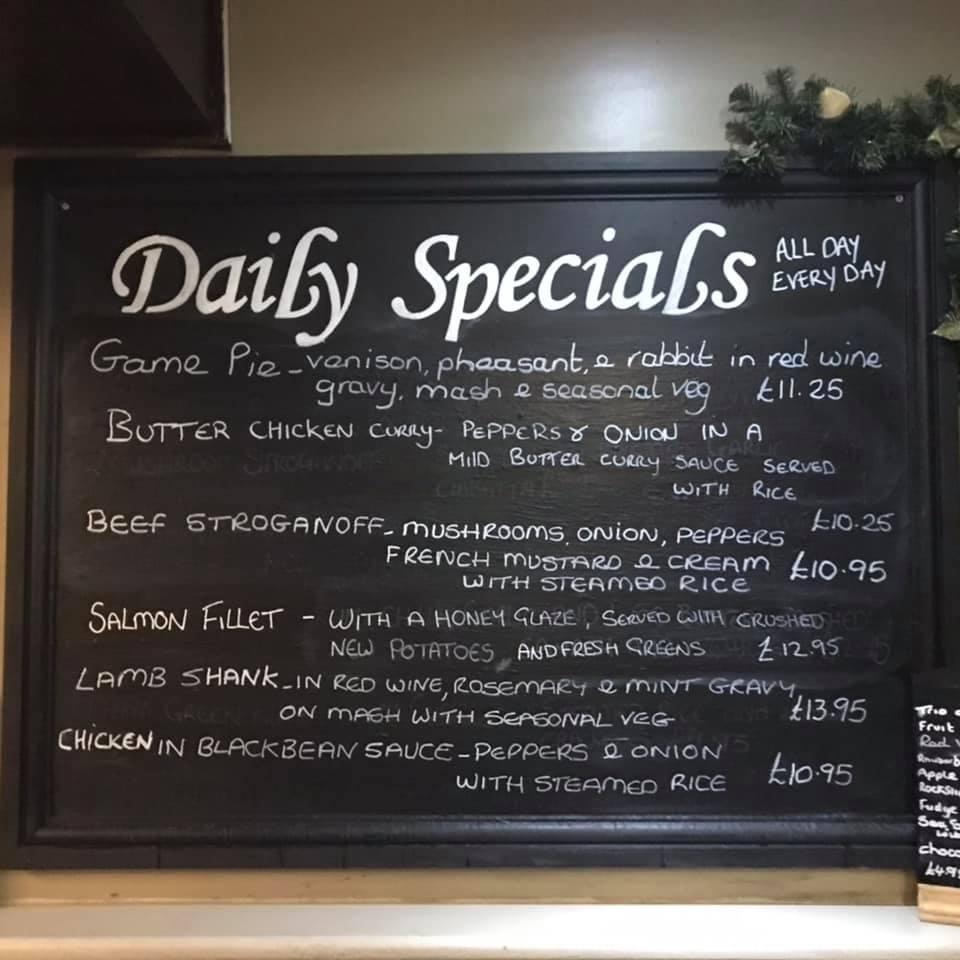 Daily Specials ALL DAY
EVERY DAY
Game Pie - venison, pheasant, & rabbit in red wine
gravy, mash & seasonal veg £11.25
BUTTER CHICKEN CURRY - PEPPERS & ONION IN A
MILD BUTTER CURRY SAUCE SERVED
WITH RICE
£10.25
BEEF STROGANOFF - MUSHROOMS, ONION, PEPPERS
FRENCH MUSTARD & CREAM £10.95
WITH STEAMED RICE
SALMON FILLET - WITH A HONEY GLAZE, SERVED WITH CRUSHED
NEW POTATOES, AND FRESH GREENS £12.95
LAMB SHANK - IN RED WINE, ROSEMARY & MINT GRAVY
ON MASH WITH SEASONAL VEG £13.95
CHICKEN IN BLACKBEAN SAUCE - PEPPERS & ONION
WITH STEAMED RICE £10.95
Trio
Fruit
Apple
Fudge